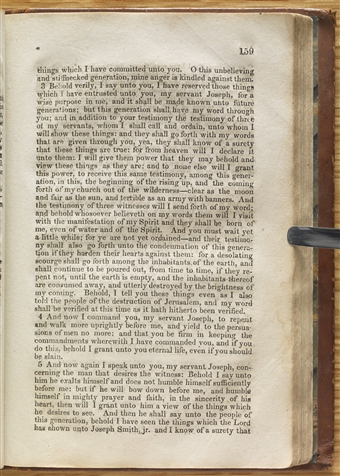 159
things which I have committed unto you. O this unbelieving
and stiffnecked generation, mine anger is kindled against them.
3 Behold verily, I say unto you, I have reserved those things
which I have entrusted unto you, my servant Joseph, for a
wise purpose in me, and it shall be made known unto future
generations; but this generation shall have my word through
you; and in addition to your testimony the testimony of three
of my servants, whom I shall call and ordain, unto whom I
will show these things: and they shall go forth with my words
that are given through you, yea, they shall know of a surety
that these things are true: for from heaven will I declare it
unto them: I will give them power that they may behold and
view these things as they are; and to none else will I grant
this power, to receive this same testimony, among this gener-
ation, in this, the beginning of the rising up, and the coming
forth of my church out of the wilderness—clear as the moon
and fair as the sun, and terrible as an army with banners. And
the testimony of three witnesses will I send forth of my word;
and behold whosoever believeth on my words them will I visit
with the manifestation of my Spirit and they shall be born of
me, even of water and of the Spirit. And you must wait yet
a little while; for ye are not yet ordained—and their testimo-
ny shall also go forth unto the condemnation of this genera-
tion if they harden their hearts against them: for a desolating
scourge shall go forth among the inhabitants of the earth, and
shall continue to be poured out, from time to time, if they re-
pent not, until the earth is empty, and the inhabitants thereof
are consumed away, and utterly destroyed by the brightness of
my coming. Behold, I tell you these things even as I also
told the people of the destruction of Jerusalem, and my word
shall be verified at this time as it hath hitherto been verified.
4 And now I command you, my servant Joseph, to repent
and walk more uprightly before me, and yield to the persua-
sions of men no more: and that you be firm in keeping the
commandments wherewith I have commanded you, and if you
do this, behold I grant unto you eternal life, even if you should
be slain.
5 And now again I speak unto you, my servant Joseph, con-
cerning the man that desires the witness: Behold I say unto
him he exalts himself and does not humble himself sufficiently
before me: but if he will bow down before me, and humble
himself in mighty prayer and faith, in the sincerity of his
heart, then will I grant unto him a view of the things which
he desires to see. And then he shall say unto the people of
this generation, behold I have seen the things which the Lord
has shown unto Joseph Smith, jr. and I know of a surety that